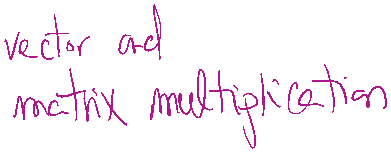 vector and
matrix multiplication